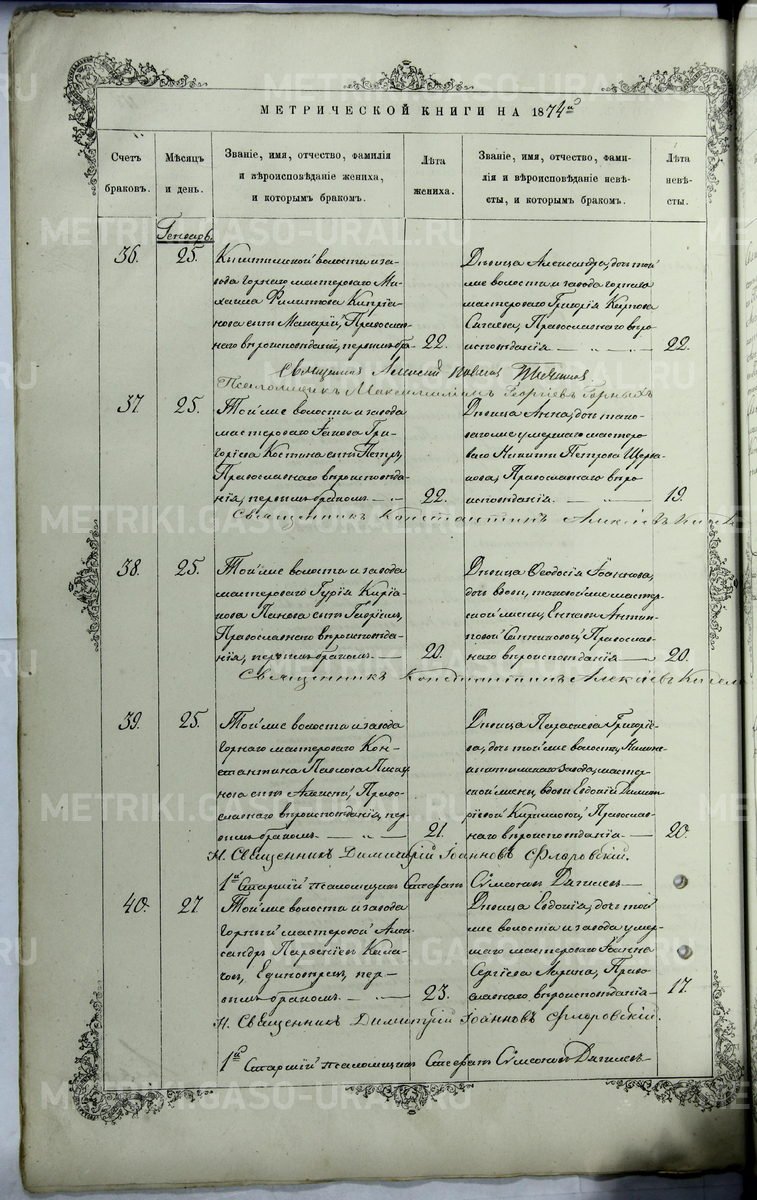 МЕТРИЧЕСКОЙ КНИГИ НА 1874й
Счетъ браковъ.
Мѣсяцъ и день.
Званіе, имя, отчество, фамилія и вѣроисповѣданіе жениха, и которымъ бракомъ.
Лѣта жениха.
Званіе, имя, отчество, фамилія и вѣроисповѣданіе невѣсты, и которымъ бракомъ.
Лѣта невѣсты.
Генварь.
36. 25.
Кыштымской волости и за-
вода горнаго мастероваго Ми-
хаила Филиппова Кипрія-
нова сынъ Макарій, Православ-
наго вѣроисповѣданія, первымъ бра-
22.
Дѣвица Александра, дочь той
же волости и завода горнаго
мастероваго Григорія Карпова
Православнаго вѣро-
исповѣданія
22.
Священникъ Алексій
Псаломщикъ Максимиліанъ Георгіевъ Горныхъ
37. 25.
Той же волости и завода
мастероваго Іакова Гри-
горьева Костина сынъ Петръ,
Православнаго вѣроисповѣда-
нія, первымъ бракомъ
22.
Дѣвица Анна, дочь тако-
вого же умершаго мастеро-
ваго Никиты Петрова Щерба-
кова, Православнаго вѣро-
исповѣданія.
19.
Священникъ Константинъ Алексіевъ
38. 25.
Той же волости и завода
мастероваго Гурія Киріа-
кова Панова сынъ Георгій,
Православнаго вѣроисповѣда-
нія, первымъ бракомъ
20.
Дѣвица Ѳеодосія Іоаннова,
дочь вдовы, таковой же мастер-
ской жены, Антип-
повой Православ-
наго вѣроисповѣданія
20.
Священникъ Константинъ Алексіевъ
39. 25.
Той же волости и завода
горнаго мастероваго Кон-
стантина Павлова
сынъ Алексій, Право-
славнаго вѣроисповѣданія, пер-
вымъ бракомъ
21.
Дѣвица Параскева Григорье-
ва, дочь той же волости, Нижне-
кыштымскаго завода, мастер-
ской жены, вдовы Евдокіи Димит-
ріевой Православ-
наго вѣроисповѣданія
20
И. Священникъ Димитрій Іоанновъ Флоровскій.
1й Старшій псаломщикъ Стефанъ Сѵмеоновъ Дягилевъ
40. 27.
Той же волости и завода
горный мастеровой Алек-
сандръ Парѳеніевъ
Единовѣрецъ, пер-
вымъ бракомъ.
23.
Дѣвица Евдокія, дочь той
же волости и завода умер-
шаго мастероваго Іоанна
Сергіева Ларина, Право-
славнаго вѣроисповѣданія
17.
И. Священникъ Димитрій Іоанновъ Флоровскій.
1й Старшій псаломщикъ Стефанъ Сѵмеоновъ Дягилевъ
METRIKI.GASO-URAL.RU